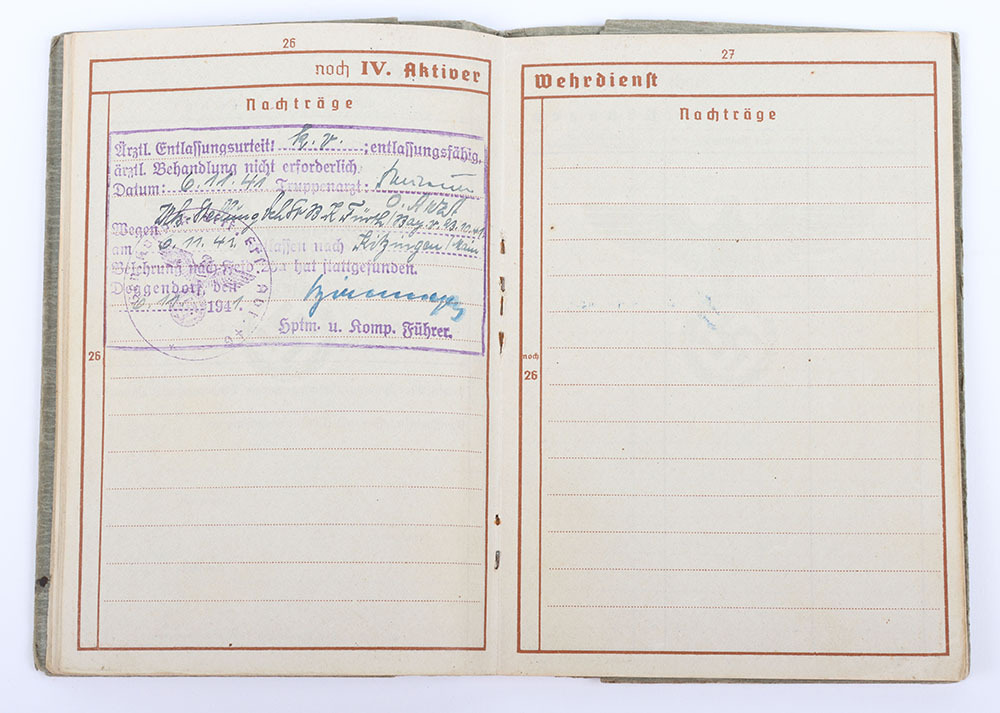 26
noch IV. Aktiver
Nachträge
Ärztl. Entlassungsurteil: k.v. ; entlassungsfähig,
ärztl. Behandlung nicht erforderlich.
Datum: 6.11.41 Truppenarzt:
O. Arzt
Wegen Uk. Stellung Fürth/Bay. v. 23.10.41
am 6.11.41 lassen nach Kitzingen/Main
Belehrung nach hat stattgefunden.
Deggendorf, den
6.11. 1941.
Hptm. u. Komp. Führer.
26
27
Wehrdienst
Nachträge
noch
26